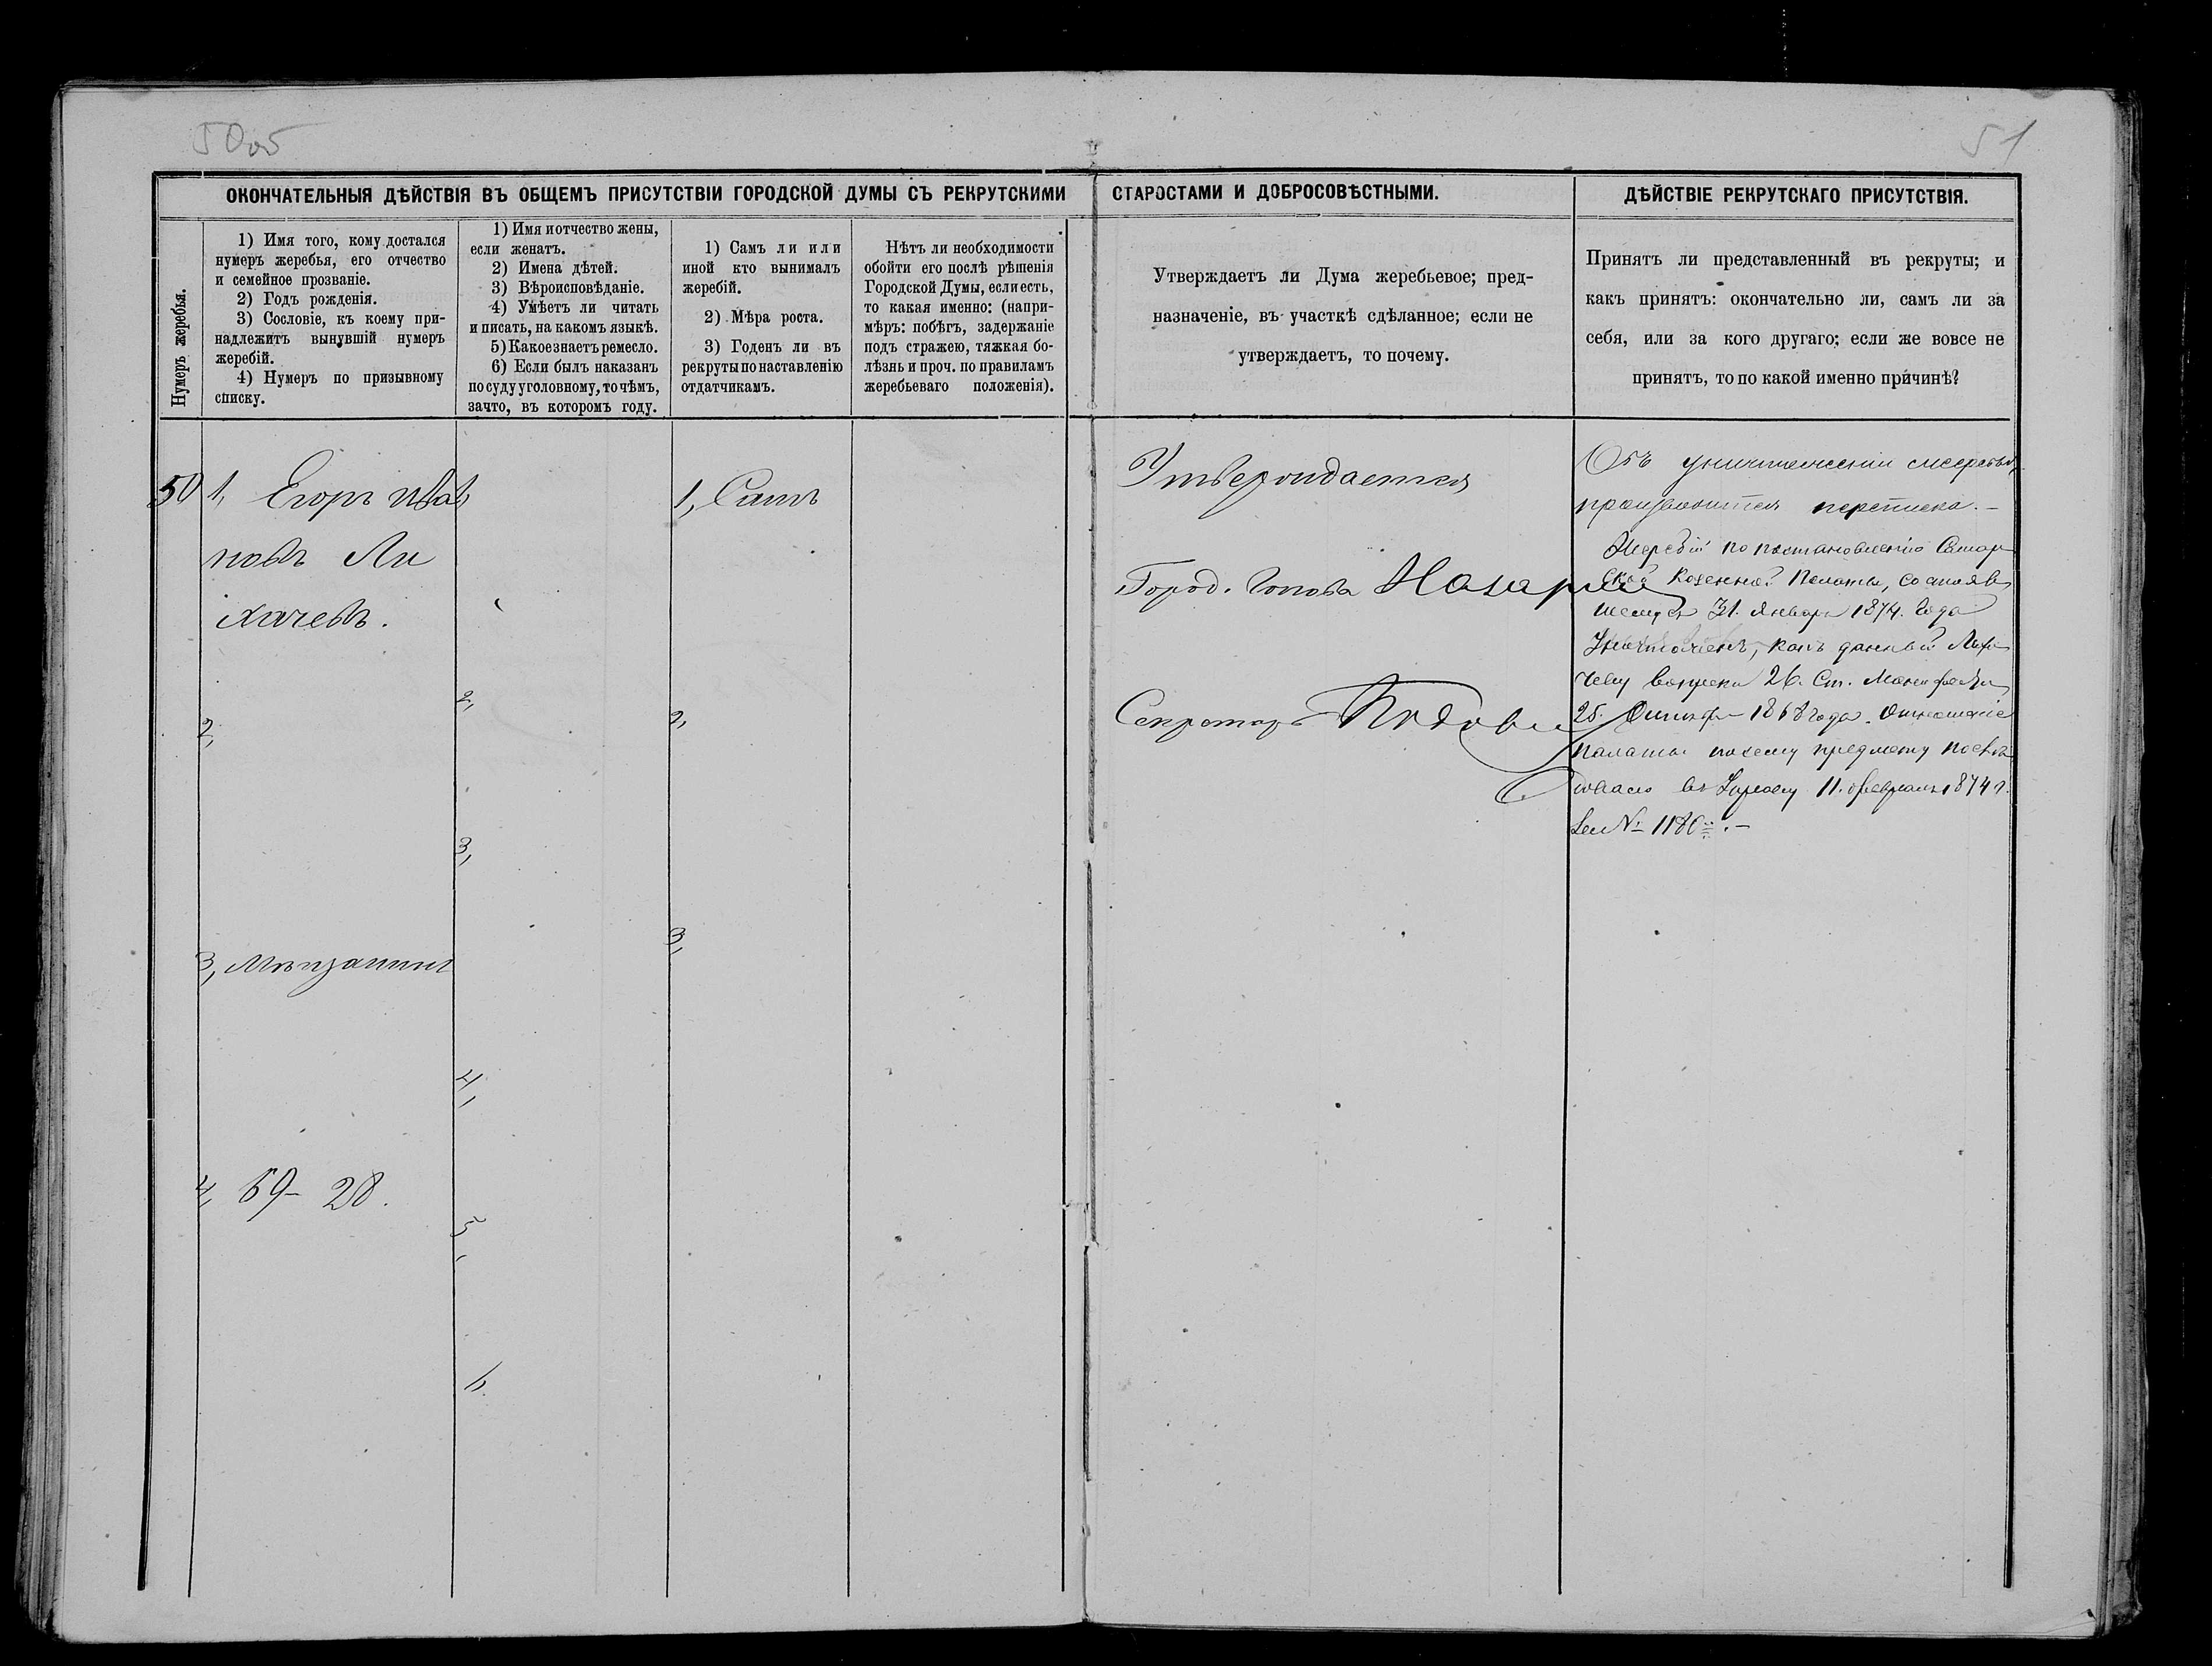 50об
51
ОКОНЧАТЕЛЬНЫЯ ДѢЙСТВІЯ ВЪ ОБЩЕМЪ ПРИСУТСТВІИ ГОРОДСКОЙ ДУМЫ СЪ РЕКРУТСКИМИ СТАРОСТАМИ И ДОБРОСОВѢСТНЫМИ.
ДѢЙСТВІЕ РЕКРУТСКАГО ПРИСУТСТВІЯ.
Нумеръ жеребья.
1) Имя того, кому достался
нумеръ жеребья, его отчество
и семейное прозваніе.
2) Годъ рожденія.
3) Сословіе, къ коему при-
надлежитъ вынувшій нумеръ
жеребій.
4) Нумеръ по призывному
списку.
1) Имя и отчество жены,
если женатъ.
2) Имена дѣтей.
3) Вѣроисповѣданіе.
4) Умѣетъ ли читать
и писать, на какомъ языкѣ.
5) Какое знаетъ ремесло.
6) Если былъ наказанъ
по суду уголовному, то чѣмъ,
за что, въ которомъ году.
1) Самъ ли или
иной кто вынималъ
жеребій.
2) Мѣра роста.
3) Годенъ ли въ
рекруты по наставленію
отдатчикамъ.
Нѣтъ ли необходимости
обойти его послѣ рѣшенія
Городской Думы, если есть,
то какая именно: (напри-
мѣръ: побѣгъ, задержаніе
подъ стражею, тяжкая бо-
лѣзнь и проч. по правиламъ
жеребьеваго положенія).
Утверждаетъ ли Дума жеребьевое; пред-
назначеніе, въ участкѣ сдѣланное; если не
утверждаетъ, то почему.
Принятъ ли представленный въ рекруты; и
какъ принятъ: окончательно ли, самъ ли за
себя, или за кого другаго; если же вовсе не
принятъ, то по какой именно причинѣ?
50
1, Егоръ Ива
новъ Ли
хачевъ.
2,
3, Мѣщанинъ
4, 69 - 28.
1,
2,
3,
4,
5,
6
1, Самъ
2,
3,
Утверждается
Город. Голова
Секретарь
Объ уничтоженіи жеребья
производится переписка. –
Жеребій по постановленію Самар
ской Казенной Палаты, состояв
шемуся 31. Января 1874. Года
Уничтоженъ, какъ данный Лиха
чеву вопреки 26. Ст. Манифеста
25. Октября 1868 года. Отношеніе
палаты по сему предмету послѣ
довало въ Управу 11. февраля 1874 г.
за № 1180. –